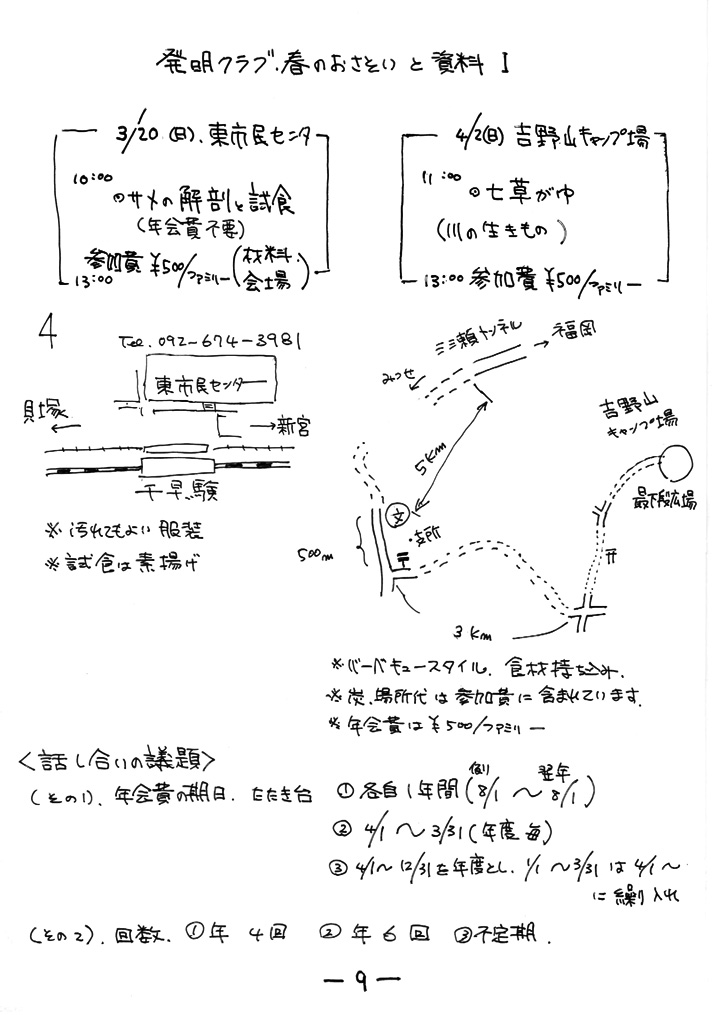 発明クラブ.春のおさそいと資料 I
3/20 (日). 東市民センタ
10:00
◎サメの解剖と試食
(年会費不要)
参加費 ¥500/ファミリー (材料.会場)
13:00
4/2(日) 吉野山キャンプ場
11:00
◎七草がゆ
(川の生きもの)
13:00 参加費 ¥500/ファミリー
4
Tel. 092-674-3981
東市民センター
貝塚
→新宮
千早驗
※汚れてもよい服装
※試食は素揚げ
三瀬トンネル
→福岡
みつせ
5Km
吉野山
キャンプ場
最下段広場
文
・支所
〒
500m
3Km
※バーベキュースタイル. 食材持ち込み.
※炭.場所代は参加費に含まれています.
※年会費は¥500/ファミリー
<話し合いの議題>
(その1). 年会費の期日. たたき台
①各自1年間(例 8/1 〜 翌年 8/1)
② 4/1 〜 3/31 (年度毎)
③ 4/1〜12/31を年度とし. 1/1 〜3/31 は 4/1〜
に繰り入れ
(その2). 回数. ①年 4回 ②年 6回 ③不定期.
— 9 —